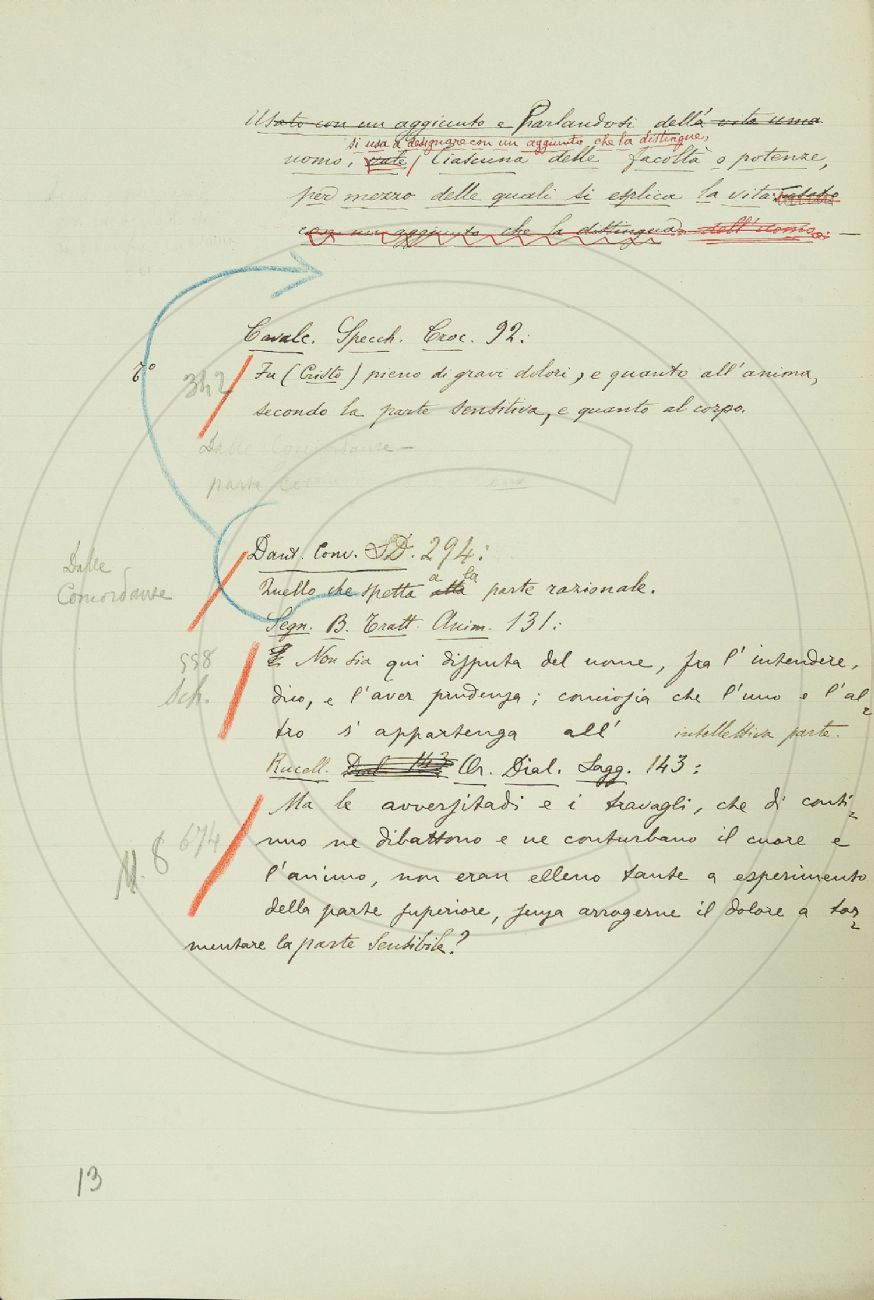 Usato con un aggiunto e Parlandosi della vita uma
si usa a designare con un aggiunto che la distingue,
uomo, vale Ciascuna delle facoltà o potenze,
per mezzo delle quali si esplica la vita:
con un aggiunto che la distingua dell'uomo. —
Cavalc. Specch. Croc. 92:
7°
342
Fu (Cristo) pieno di gravi dolori, e quanto all'anima,
secondo la parte sensitiva, e quanto al corpo.
Dalle Concordanze —
parte
Dant. Conv. SD. 294:
Dalle
Concordanze
a la
Quello che spetta alla parte razionale.
Segn. B. Tratt. Anim. 131:
558
Sch.
Non sia qui disputa del nome, fra l'intendere,
dico, e l'aver prudenza; conciosia che l'uno e l'al-
tro s'appartenga all' intellettiva parte.
Rucell. Dial. 143 Or. Dial. Sagg. 143:
M. 8 674
Ma le avversitadi e i travagli, che di conti-
nuo ne dibattono e ne conturbano il cuore e
l'animo, non eran elleno tante a esperimento
della parte superiore, senza arrogerne il dolore a tor-
mentare la parte sensibile?
13